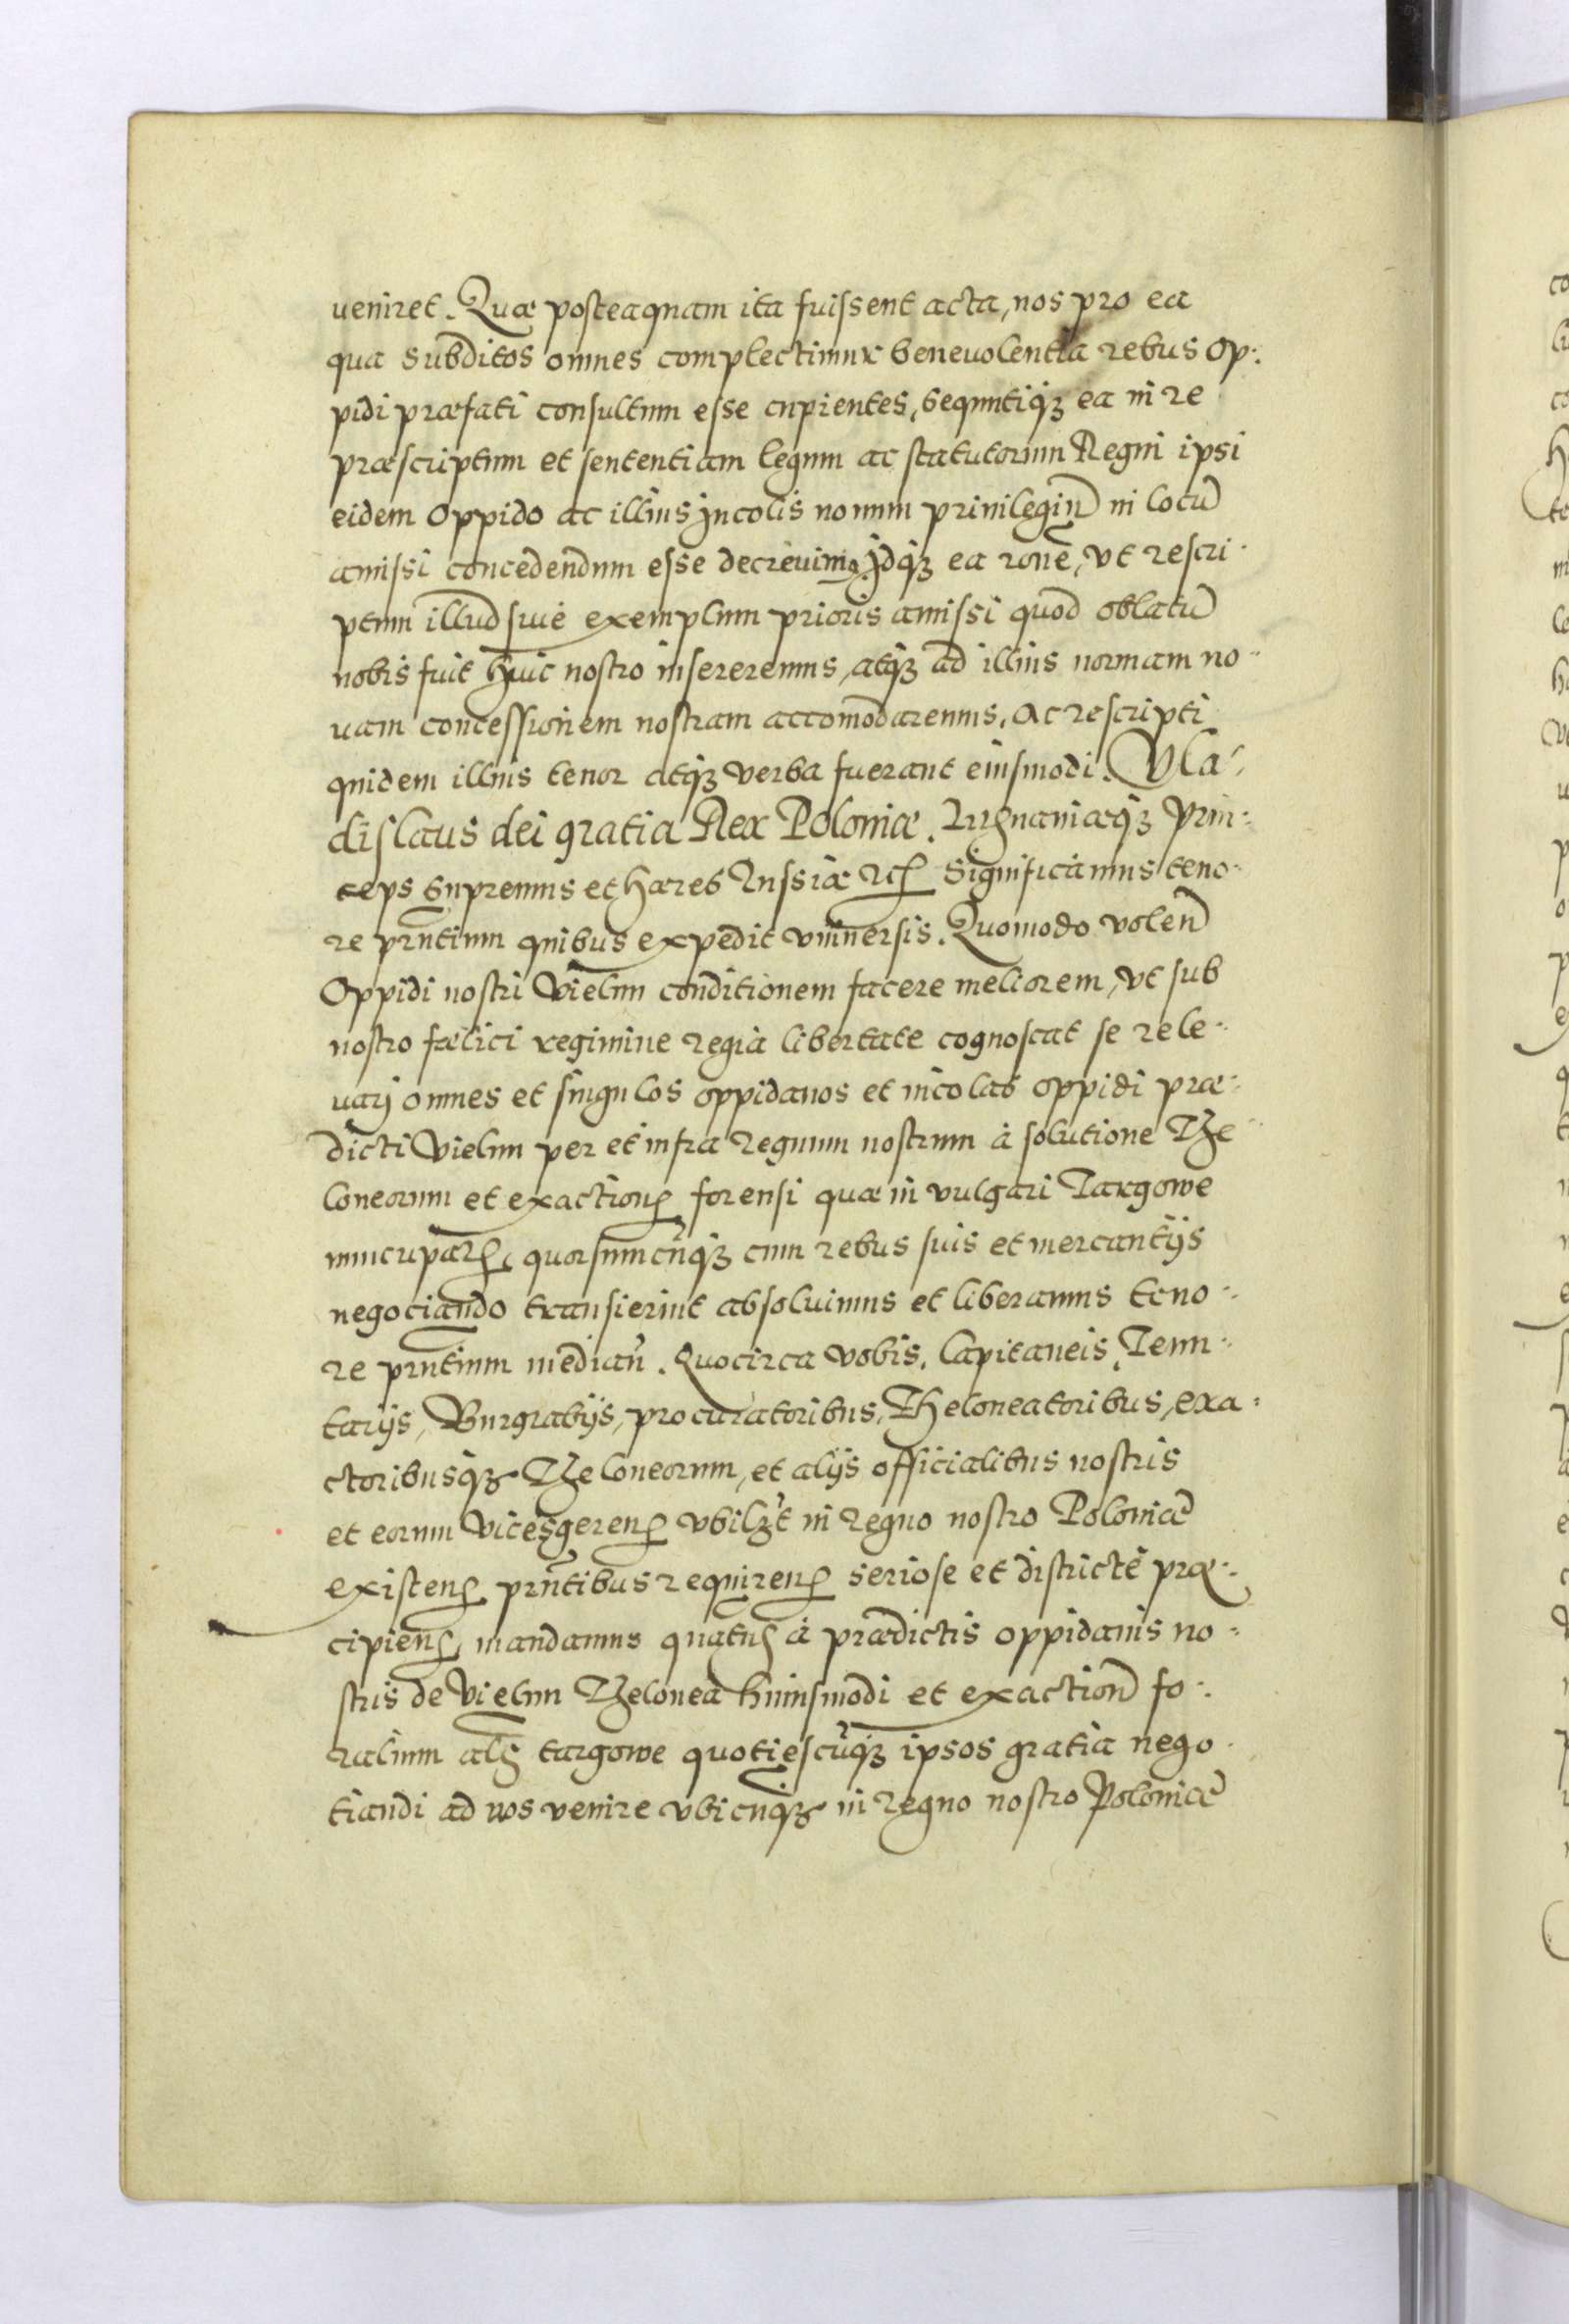 veniret. Quæ posteaquam ita fuissent acta, nos pro ea
qua subditos omnes complectimur benevolentia rebus op-
pidi præfati consultum esse cupientes, sequutiq3 ea in re
præscriptum et sententiam legum ac statutorum Regni ipsi
eidem oppido ac illius Incolis nouum priuilegiũ in locũ
amissi concedendum esse decreuimꝰ, Idq3 ea rone, vt rescri-
ptum illud siue exemplum prioris amissi quod oblatũ
nobis fuit huic nostro insereremus, atq3 ad illius normam no-
uam concessionem nostram accomodaremus. Ac rescripti
quidem illius tenor atq3 verba fuerant eiusmodi. Vla-
dislaus dei gratia Rex Poloniæ. Lithuaniæq3 Prin-
ceps Supremus et hæres Russiæ etc. Significamus teno-
re prñtium quibus expedit vniuersis. Quomodo volen
Oppidi nostri Vielun conditionem facere meliorem, vt sub
nostro fælici regimine regia libertate cognoscat se rele-
uarj omnes et singulos oppidanos et incolas oppidi præ-
dicti Vielun per et infra regnum nostrum à solutione The
loneorum et exactionꝭ forensi quæ in vulgari Targowe
nuncuparꝭ, quorsumcũq3 cum rebus suis et mercantijs
negociando transierint absoluimus et liberamus teno-
re prñtium mediañ. Quocirca vobis, Capitaneis, Tenu-
tarijs, Burgrabijs, procuratoribus, Theloneatoribus, exa-
ctoribusq3 Theloneorum, et alijs officialibus nostris
et eorum vicesgerenꝭ vbilzt in regno nostro Poloniæ
existenꝭ prñtibus requirenꝭ seriose et districtè præ-
cipienꝭ, mandamus quatnꝭ à prædictis oppidanis no-
stris de Vielun Thelonea huiusmodi et exaction fo-
ralium alꝭ targowe quotiescũq3 ipsos gratia nego-
tiandi ad vos venire vbicunq3 in regno nostro Poloniæ